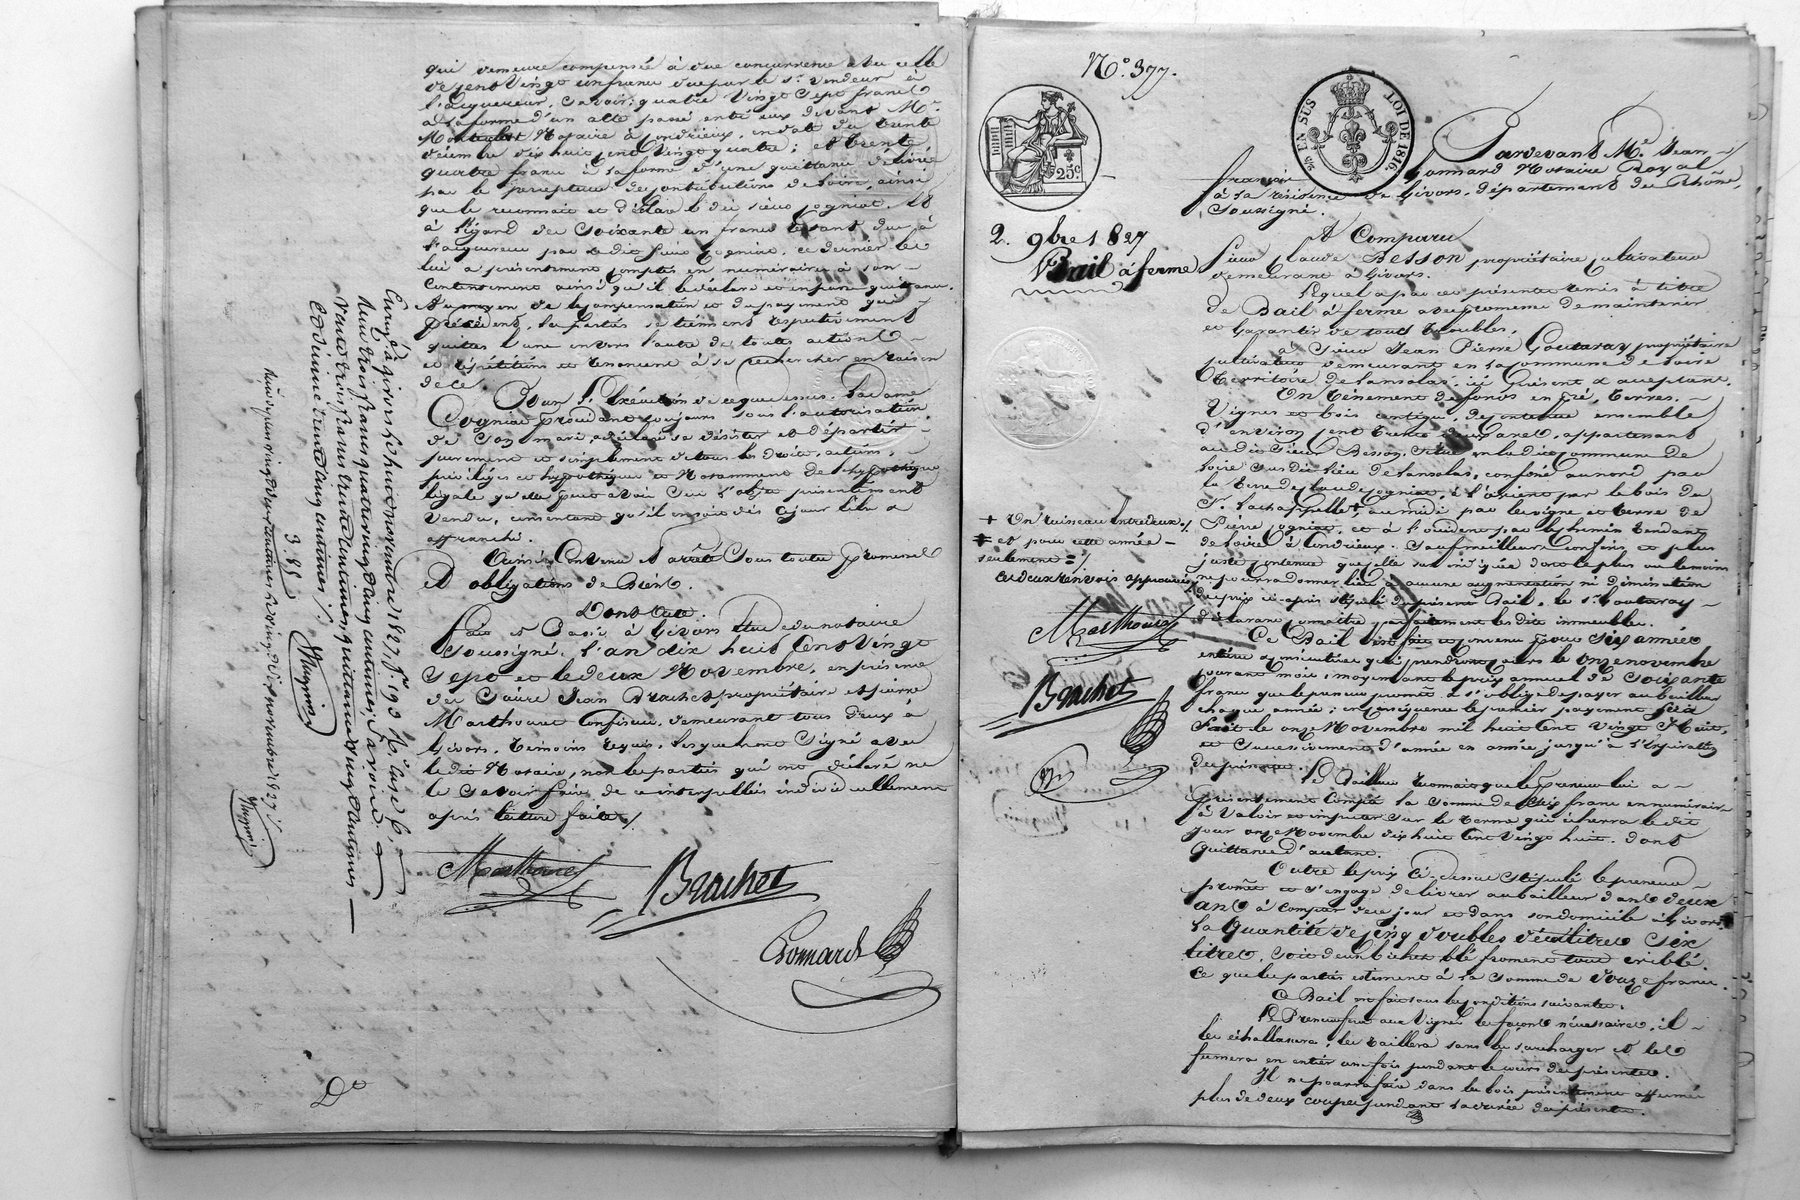 qui demeure compensée à due concurrence avec celle
de cent vingt un francs due par le sr. vendeur à
l'acquereur, savoir; quatre vingt sept francs
à la forme d'un acte passé entre eux devant Me.
Notaire à Condrieux, en date du trente
décembre dix huit cent vingt quatre; et trente
quatre francs à la forme d'une quittance délivrée
par le percepteur des contributions de Loire, ainsi
que le reconnait et déclare le dit sieur Cognat. Et
à l'égard des soixante un francs restant dus à
l'acquereur par le dit sieur Cognat, ce dernier les
lui a présentement comptés en numéraire à son
contentement ainsi qu'il le déclare et en passe quittance.
Au moyen de la compensation et du payement qui
précèdent, les parties se tiennent respectivement
quittes l'une envers l'autre de toutes actions
et répétitions et renoncent à se rechercher en raison
de ce.
Pour l'Exécution de ce que dessus, la dame
Cognat procédant toujours sous l'autorisation
de son mari, a déclaré se désister et départir
purement et simplement de tous les droits, actions,
privilèges et hypothèques et notamment de l'hypothèque
légale qu'elle peut avoir sur l'objet présentement
vendu, consentant qu'il en soit dès ce jour libre et
affranchi.
Ainsi Convenu et arrêté sous toutes promesses
et obligations de Biens.
Dont Acte.
Fait et Passé à Givors Etude du notaire
soussigné, l'an dix huit Cent Vingt
Sept et le deux Novembre, en présence
de Sieurs Jean Brachet propriétaire et pierre
Marthoud Confiseur, demeurant tous deux à
Givors, témoins requis, lesquels ont signé avec
le dit Notaire, non les parties qui ont déclaré ne
le savoir faire de ce interpellés individuellement
après lecture faite /.
Brachet
Bonnard
Enregé. à givors le huit novembre 1827, fo. 193
Reçu trois francs
3.85
Do
No. 377.
25c
EN SUS
LOI DE 1816
Pardevant Me. Jean
françois Bonnard Notaire Royal
à la résidence de Givors, département du Rhône,
soussigné.
2. 9bre 1827
Bail à ferme
A Comparu
Sieur Claude BESSON propriétaire cultivateur
demeurant à Givors.
Lequel a par ces présentes remis à titre
de Bail à ferme avec promesse de maintenir
et garantir de tous troubles,
à Sieur Jean Pierre Goutaray propriétaire
cultivateur demeurant en la commune de Loire
territoire de Lansolas, ici présent et acceptant,
Un Ténement de fonds en pré, terres,
Vignes et bois contigus, de contenue ensemble
d'environ cent trente deux ares, appartenant
au dit Sieur Besson, situé en la dite commune de
Loire susdit lieu de Lansolas, confiné au nord par
la terre de Claude Cognat, à l'orient par le bois du
Sr. Lachappelle +, au midi par les vigne et terre de
Pierre Cognat, et à l'occident par le chemin tendant
de Loire à Condrieux. Sauf meilleurs confins et plus
juste contenue que celle sus indiquée dont le plus ou le moins
ne pourra donner lieu à aucune augmentation ni diminution
du prix ci-après stipulé du présent Bail, le sr. Goutaray
déclarant connaitre parfaitement les dits immeubles.
+ Un ruisseau entre deux /.
et pour cette année
seulement = /
Ces deux renvois approuvés
Brachet
Ce Bail est fait et convenu pour six années
entières et consécutives qui prendront cours le onze novembre
courant mois, moyennant le prix annuel de soixante
francs que le preneur promet et s'oblige de payer au bailleur
chaque année; en conséquence le premier payement sera
fait le onze Novembre mil huit Cent Vingt Huit,
et successivement d'année en année jusqu'à l'expiration
du présent.
Le Bailleur reconnait que le preneur lui a
présentement compté la somme de six francs en numéraire
à valoir et imputer sur le terme qui écherra le dit
jour onze Novembre dix huit Cent Vingt huit, dont
quittance d'autant.
Outre le prix ci-dessus stipulé le preneur
promet et s'engage de livrer au bailleur dans deux
ans à compter de ce jour et dans son domicile à Givors
la quantité de cinq doubles décalitres six
litres, soit deux bichets blé froment tout criblé,
ce que les parties estiment à la somme de douze francs.
Ce Bail est fait sous les conditions suivantes.
Le Preneur fera aux Vignes les façons nécessaires, il
les échallassera, les taillera sans les surcharger et les
fumera en entier une fois pendant le cours des présentes.
Il ne pourra faire dans les bois présentement affermés
plus de deux coupes pendant la durée des présentes.